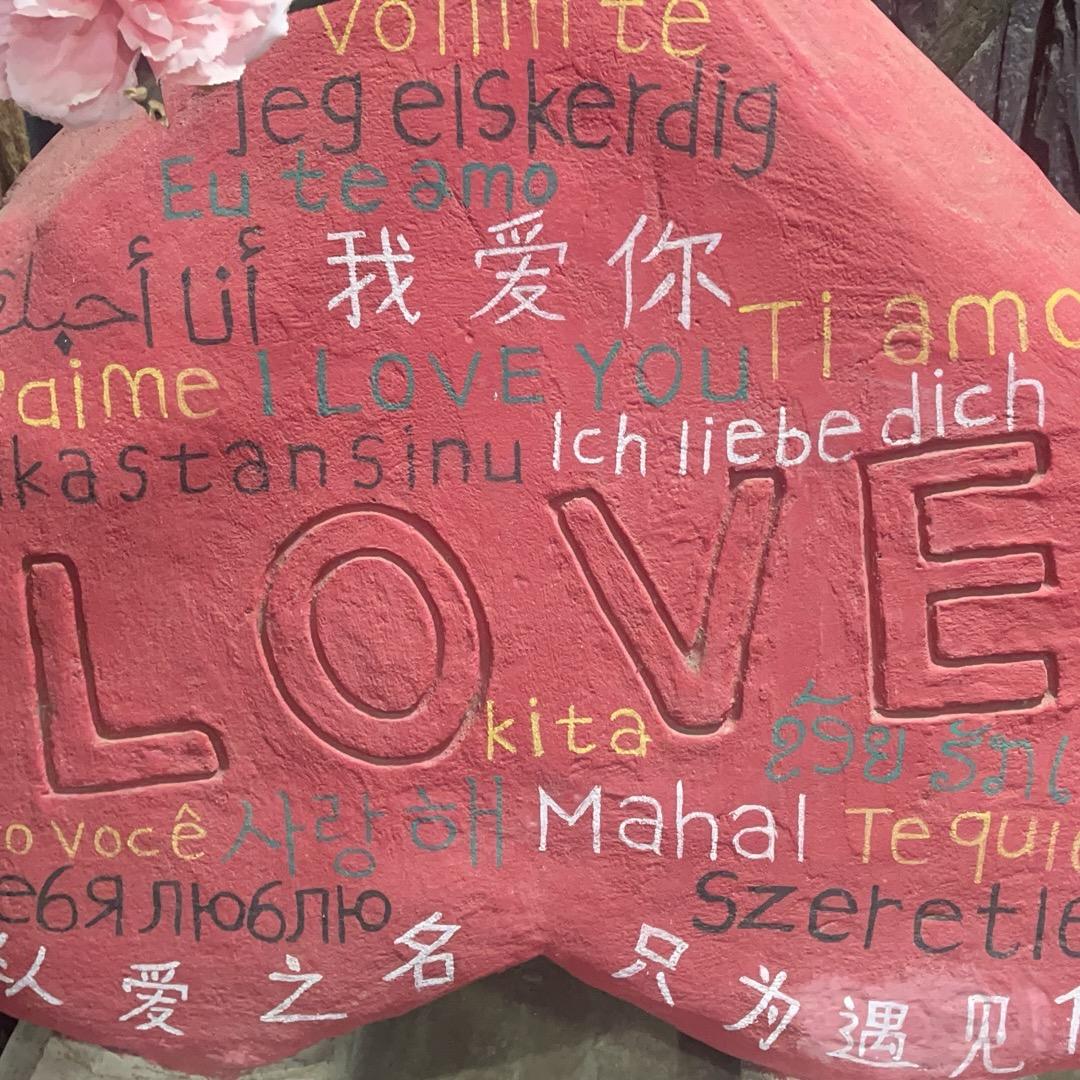 volim te
Jeg elskerdig
Eu te amo
我爱你
أنا أحبك
Ti amo
'aime
I LOVE YOU
Ich liebe dich
kastansinu
LOVE
kita
ข้อย ฮัก
você
사랑해
Mahal
Te quie
ебя люблю
Szeretle
以爱之名
只为遇见